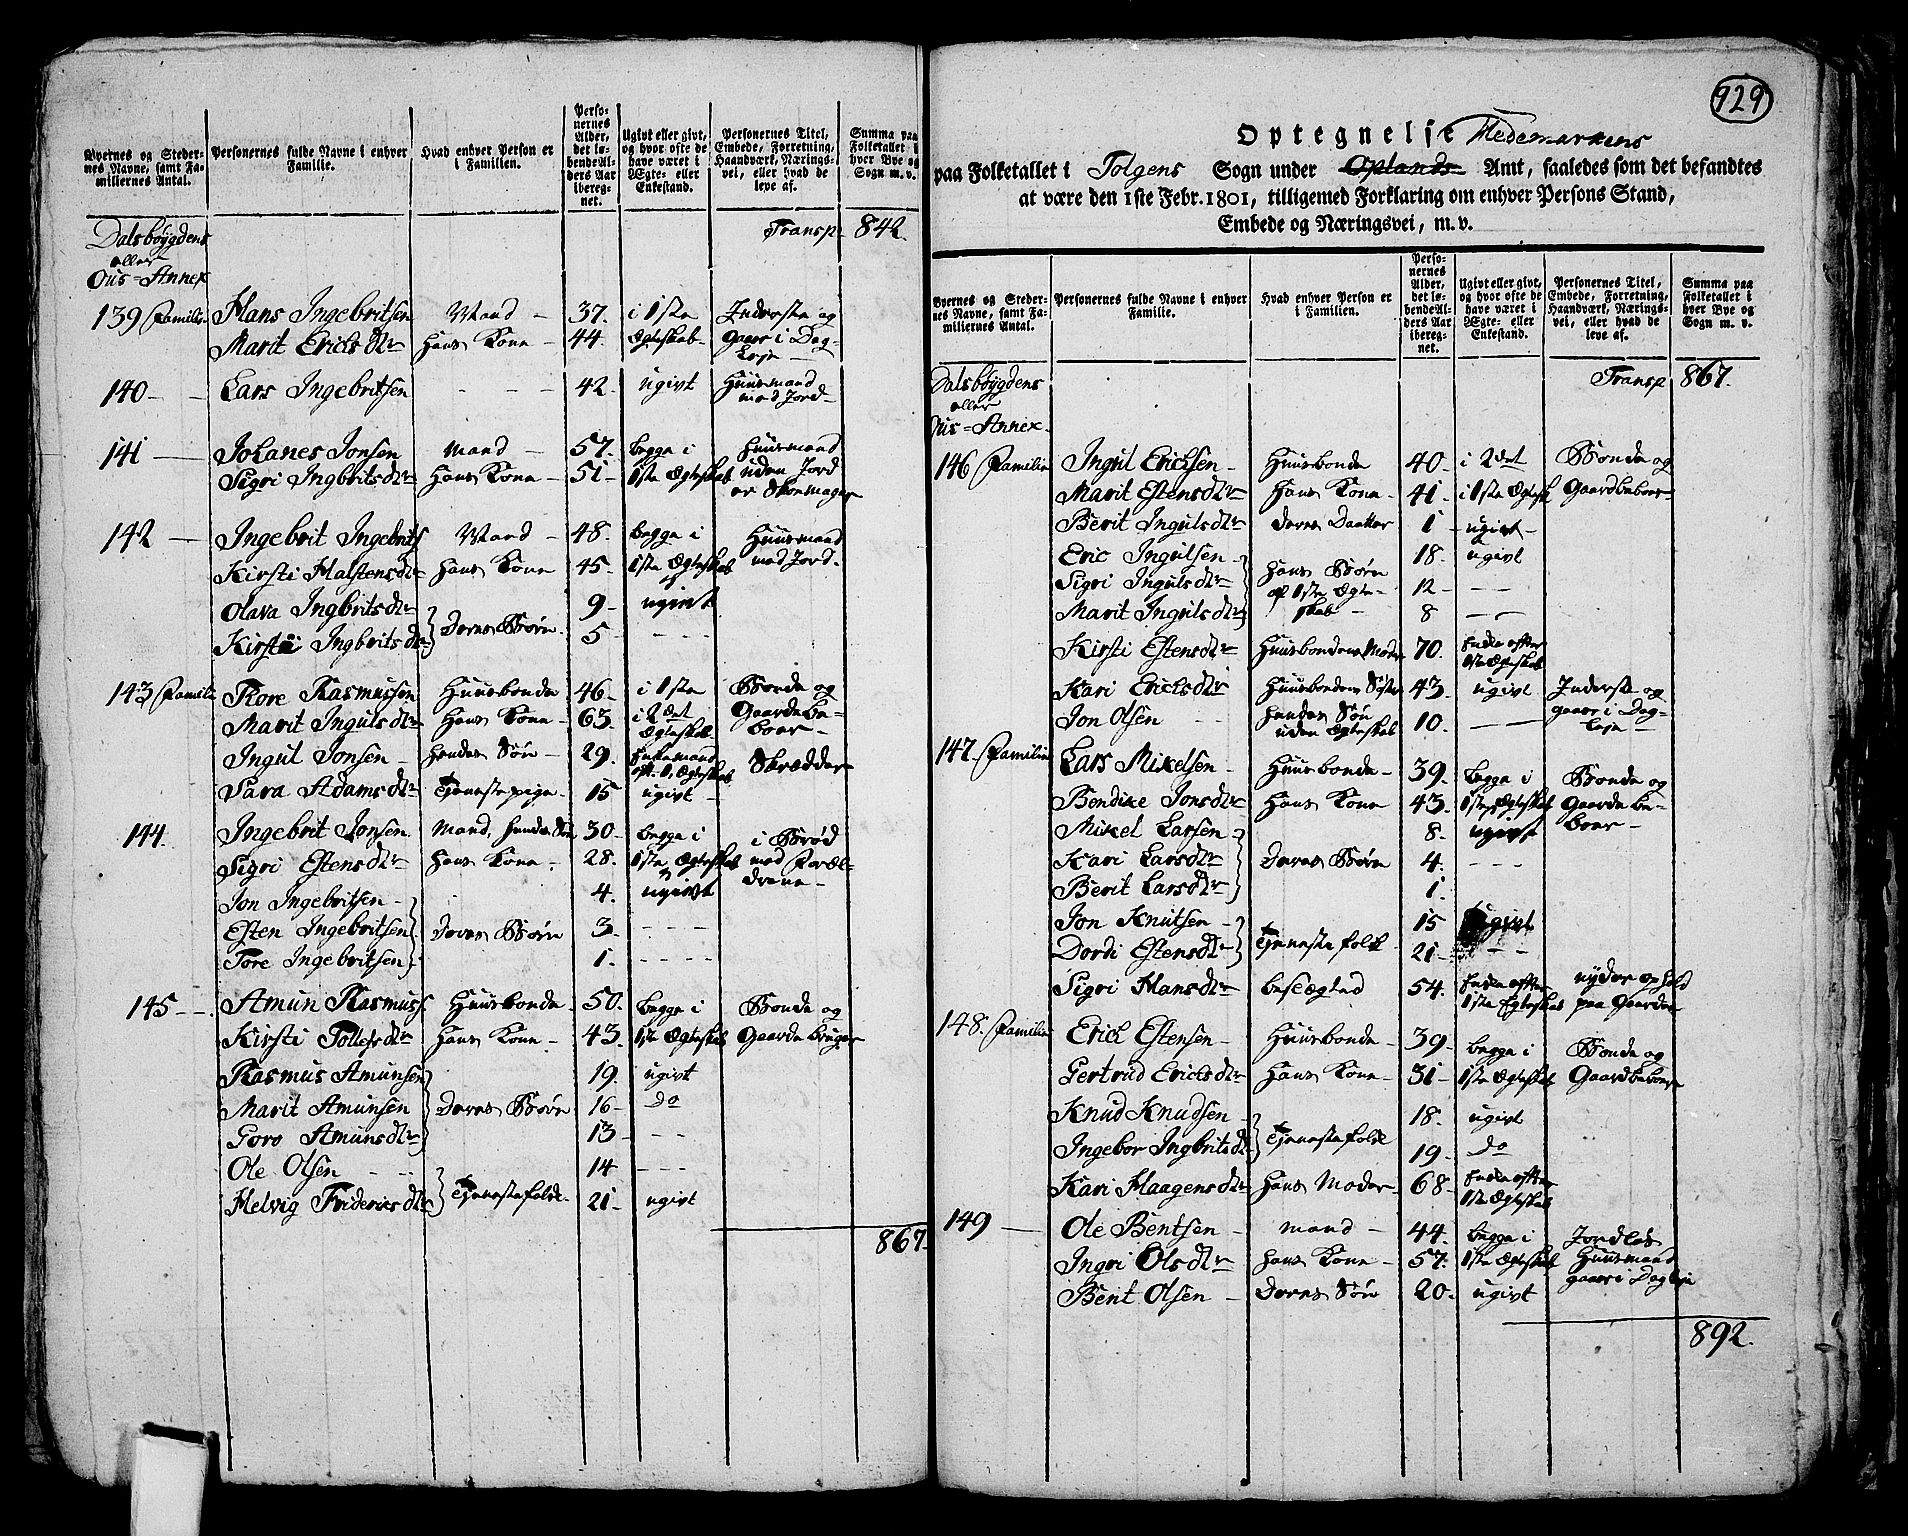 Byernes og Steder-
nes Navne, samt Fa-
miliernes Antal.
Personernes fulde Navne i enhver
Familie.
Hvad enhver Person er
i Familien.
Perso-
nernes
Alder,
det lø-
bende Al-
ders Aar
ibereg-
net.
Ugivt eller givt,
og hvor ofte de
have været i
Ægte- eller
Enkestand.
Personernes Titel,
Embede, Forretning,
Haandværk, Nærings-
vei, eller hvad de
leve af.
Summa paa
Folketallet i
hver Bye og
Sogn m. v.
Dalsbøygdens
eller
Ous=Annex
Transp 842.
139 Familie Hans Ingebritsen Mand - 37. i 1ste Inderste og
Marit Erichsdtr Hans Kone - 44. Ægteskab gaaer i Dag-
Leje -
140 - - Lars Ingebritsen - - - 42. ugivt Huusmand
med Jord -
141 - Johanes Jonsen Mand - 57. begge i Huusmand
Sigri Ingbritsdtr Hans Kone - 51 - 1ste Ægteskab uden Jord
er Skoemager
142 - Ingebrit Ingebrits Mand - 48. begge i Huusmand
Kirsti Halstensdtr Hans Kone 45. 1ste Ægteskab med Jord.
Olava Ingbritsdtr 9 - ugivt
Kirsti Ingbritsdtr Deres Børn 5 - - - -
143 Familie Tore Rasmussen Huusbonde - 46 - i 1ste Bonde og
Marit Ingulsdtr Hans Kone - 63. i 2det Gaardbe-
Ægteskab boer -
Ingul Jonsen - hendes Søn - 29. Enkemand Skrædder
eft. 1. Ægteskab
Sara Adamsdtr Tjenestepige - 15 ugivt -
144. Ingebrit Jonsen Mand, hendes Søn 30 - begge i i Brød
Sigri Estensdtr Hans Kone - 28. 1ste Ægteskab med Foræl-
Jon Ingebritsen - 4. ugivt drene -
Esten Ingebritsen Deres Børn 3 - - - -
Tore Ingebritsen 1 - - - - -
145 - - Amun Rasmuss. Huusbonde - 50. begge i Bonde og
Kirsti Tollefsdtr Hans Kone - 43. 1ste Ægteskab Gaardebruger
Rasmus Amunsen 19. ugivt
Marit Amunsen Deres Børn 16 - Do
Goro Amunsdtr 13 - - -
Ole Olsen - - 14 - - -
Helvig Fridericsdtr Tjenestefolk - 21 - ugivt
867.
929
Optegnelse Hedemarkens
paa Folketallet i Tolgens Sogn under Oplands Amt, saaledes som det befandtes
at være den 1ste Febr. 1801, tilligemed Forklaring om enhver Persons Stand,
Embede og Næringsvei, m. v.
Byernes og Steder-
nes Navne, samt Fa-
miliernes Antal.
Personernes fulde Navne i enhver
Familie.
Hvad enhver Person er
i Familien.
Perso-
nernes
Alder,
det lø-
bende Al-
ders Aar
ibereg-
net.
Ugivt eller givt,
og hvor ofte de
have været i
Ægte- eller
Enkestand.
Personernes Titel,
Embede, Forretning,
Haandværk, Nærings-
vei, eller hvad de
leve af.
Summa paa
Folketallet i
hver Bye og
Sogn m. v.
Dalsbøygdens
eller
Ous=Annex.
Transp 867.
146 Familie Ingul Erichsen - Huusbonde 40 - i 2det Bonde og
Marit Estensdtr Hans Kone - 41 - i 1ste Ægtesk Gaardbeboer -
Berit Ingulsdtr deres Daatter 1 - ugivt -
Eric Ingulsen - 18. ugivt
Sigri Ingulsdtr Hans Børn 12 - - -
af 1ste Ægte-
Marit Ingulsdtr skab - 8 - -
Kirsti Estensdtr Huusbondens Moder 70. Enke efter
1ste Ægteskab
Kari Erichsdtr Huusbondens Søster 43. ugivt Inderste og
Jon Olsen - - hendes Søn 10. - - gaaer i Dag-
uden Ægteskab leje -
147. Familie Lars Mikelsen - Huusbonde - 39. begge i Bonde og
Bendike Jonsdtr Hans Kone 43. 1ste Ægteskab Gaardebe-
Mikel Larsen - 8. ugivt boer -
Kari Larsdtr Deres Børn 4. - - -
Berit Larsdtr 1.
Jon Knutsen - 15 ugivt
Dordi Estensdtr Tjenestefolk - 21 - - -
Sigri Hansdtr besægted 54. Enke efter nyder ophold
1ste Egteskab paa Gaarden
148. Familie Erich Estensen - Huusbonde - 39. begge i Bonde og
Gertrud Erichsdtr Hans Kone - 31 - 1ste Ægteskab Gaardbeboer
Knud Knudsen - 18. ugivt
Ingebor Ingbritsdtr Tjenestefolk 19 - Do
Kari Haagensdtr Hans Moder - 68 - Enke efter
1ste Ægteskab
149 - Ole Bentsen - mand - 44. begge i Jordløs
Ingri Olsdtr hans Kone - 57. 1ste Ægteskab Huusmand
gaaer i Dagleje
Bent Olsen - Deres Søn 20. ugivt
892.